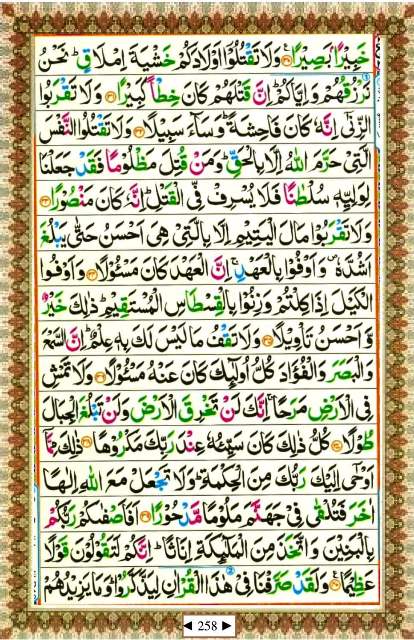 خَبِيْرًۢا بَصِيْرًا ۟۠ وَلَا تَقْتُلُوْۤا اَوْلَادَكُمْ خَشْيَةَ اِمْلَاقٍ ؕ نَحْنُ
نَرْزُقُهُمْ وَاِيَّاكُمْ ؕ اِنَّ قَتْلَهُمْ كَانَ خِطْاً كَبِيْرًا ۟ وَلَا تَقْرَبُوا
الزِّنٰۤى اِنَّهٗ كَانَ فَاحِشَةً ؕ وَسَآءَ سَبِيْلًا ۟ وَلَا تَقْتُلُوا النَّفْسَ
الَّتِيْ حَرَّمَ اللّٰهُ اِلَّا بِالْحَقِّ ؕ وَمَنْ قُتِلَ مَظْلُوْمًا فَقَدْ جَعَلْنَا
لِوَلِيِّهٖ سُلْطٰنًا فَلَا يُسْرِفْ فِّي الْقَتْلِ ؕ اِنَّهٗ كَانَ مَنْصُوْرًا ۟
وَلَا تَقْرَبُوْا مَالَ الْيَتِيْمِ اِلَّا بِالَّتِيْ هِيَ اَحْسَنُ حَتّٰى يَبْلُغَ
اَشُدَّهٗ ۪ وَاَوْفُوْا بِالْعَهْدِ ۚ اِنَّ الْعَهْدَ كَانَ مَسْـُٔوْلًا ۟ وَاَوْفُوا
الْكَيْلَ اِذَا كِلْتُمْ وَزِنُوْا بِالْقِسْطَاسِ الْمُسْتَقِيْمِ ؕ ذٰلِكَ خَيْرٌ
وَّاَحْسَنُ تَاْوِيْلًا ۟ وَلَا تَقْفُ مَا لَيْسَ لَكَ بِهٖ عِلْمٌ ؕ اِنَّ السَّمْعَ
وَالْبَصَرَ وَالْفُؤَادَ كُلُّ اُولٰٓئِكَ كَانَ عَنْهُ مَسْـُٔوْلًا ۟ وَلَا تَمْشِ
فِي الْاَرْضِ مَرَحًا ۚ اِنَّكَ لَنْ تَخْرِقَ الْاَرْضَ وَلَنْ تَبْلُغَ الْجِبَالَ
طُوْلًا ۟ كُلُّ ذٰلِكَ كَانَ سَيِّئُهٗ عِنْدَ رَبِّكَ مَكْرُوْهًا ۟ ذٰلِكَ مِمَّاۤ
اَوْحٰۤى اِلَيْكَ رَبُّكَ مِنَ الْحِكْمَةِ ؕ وَلَا تَجْعَلْ مَعَ اللّٰهِ اِلٰهًا
اٰخَرَ فَتُلْقٰى فِيْ جَهَنَّمَ مَلُوْمًا مَّدْحُوْرًا ۟ اَفَاَصْفٰىكُمْ رَبُّكُمْ
بِالْبَنِيْنَ وَاتَّخَذَ مِنَ الْمَلٰٓئِكَةِ اِنَاثًا ؕ اِنَّكُمْ لَتَقُوْلُوْنَ قَوْلًا
عَظِيْمًا ۟۠ وَلَقَدْ صَرَّفْنَا فِيْ هٰذَا الْقُرْاٰنِ لِيَذَّكَّرُوْا ؕ وَمَا يَزِيْدُهُمْ
258